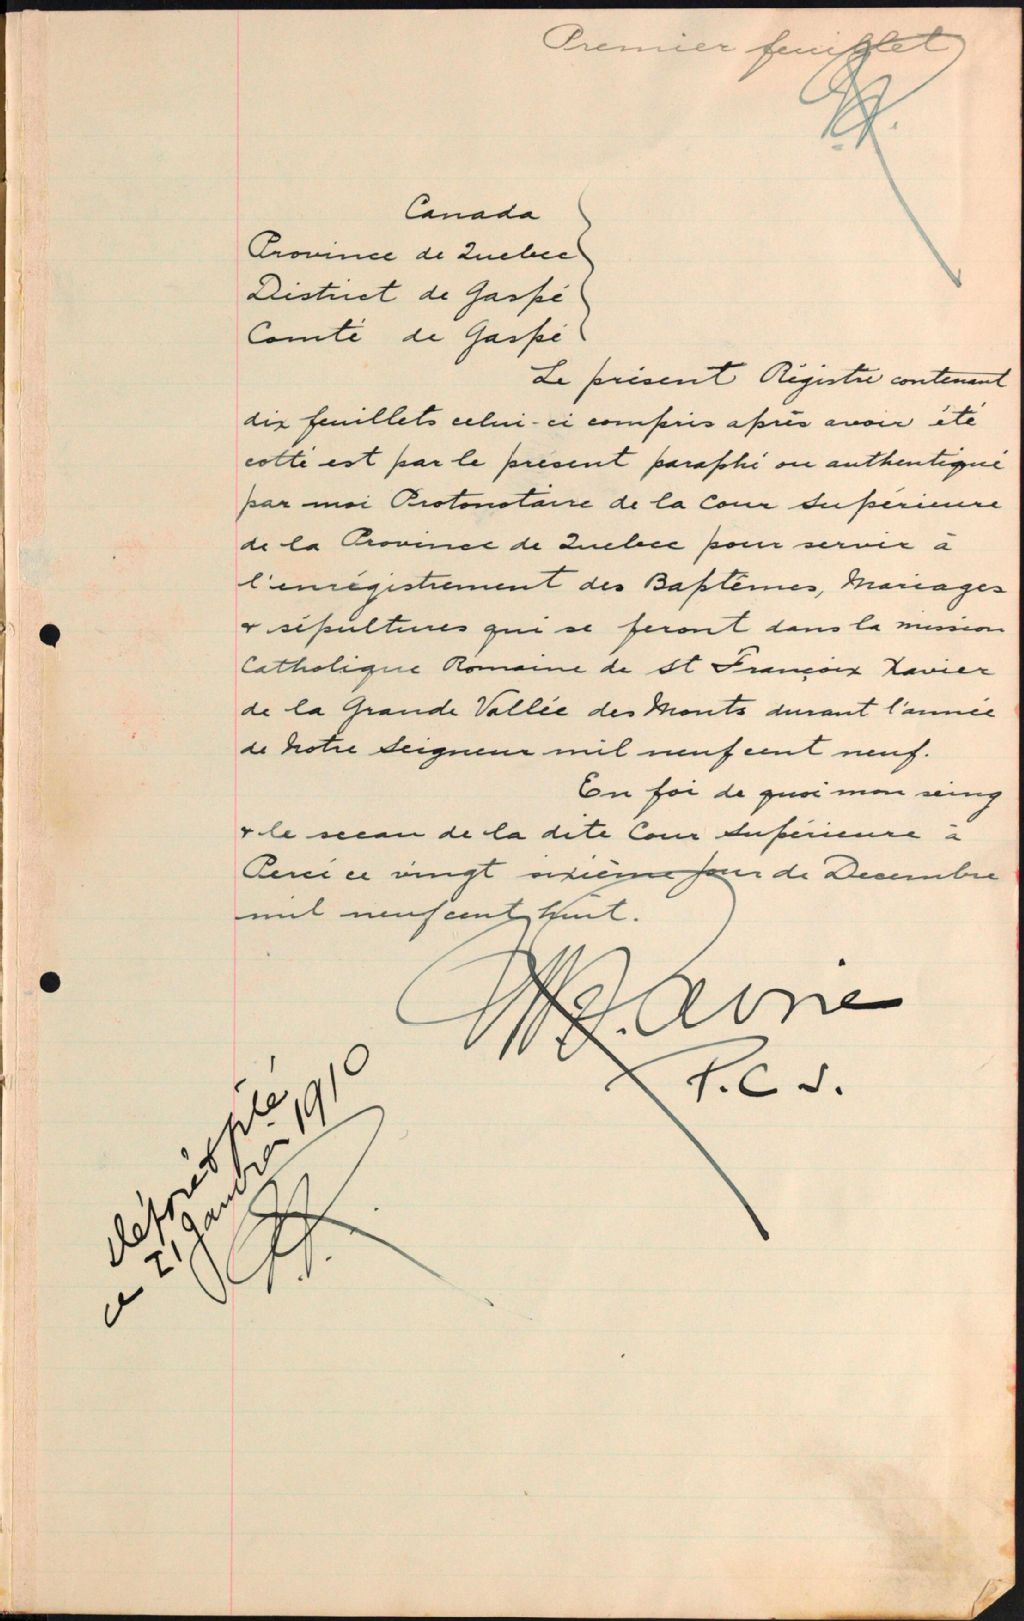 Premier feuillet
Canada
Province de Quebec
District de Gaspé
Comté de Gaspé
Le présent Régistre contenant
dix feuillets celui-ci compris après avoir été
cotté est par le présent paraphé ou authentiqué
par moi Protonotaire de la Cour Supérieure
de la Province de Quebec pour servir à
l'enrégistrement des Baptêmes, Mariages
& sépultures qui se feront dans la mission
Catholique Romaine de St François Xavier
de la Grande Vallée des Monts durant l'année
de Notre Seigneur mil neuf cent neuf.
En foi de quoi mon seing
& le sceau de la dite Cour Supérieure à
Percé ce vingt sixième jour de Decembre
mil neuf cent huit.
P.C.S.
ce 21 Janvier 1910